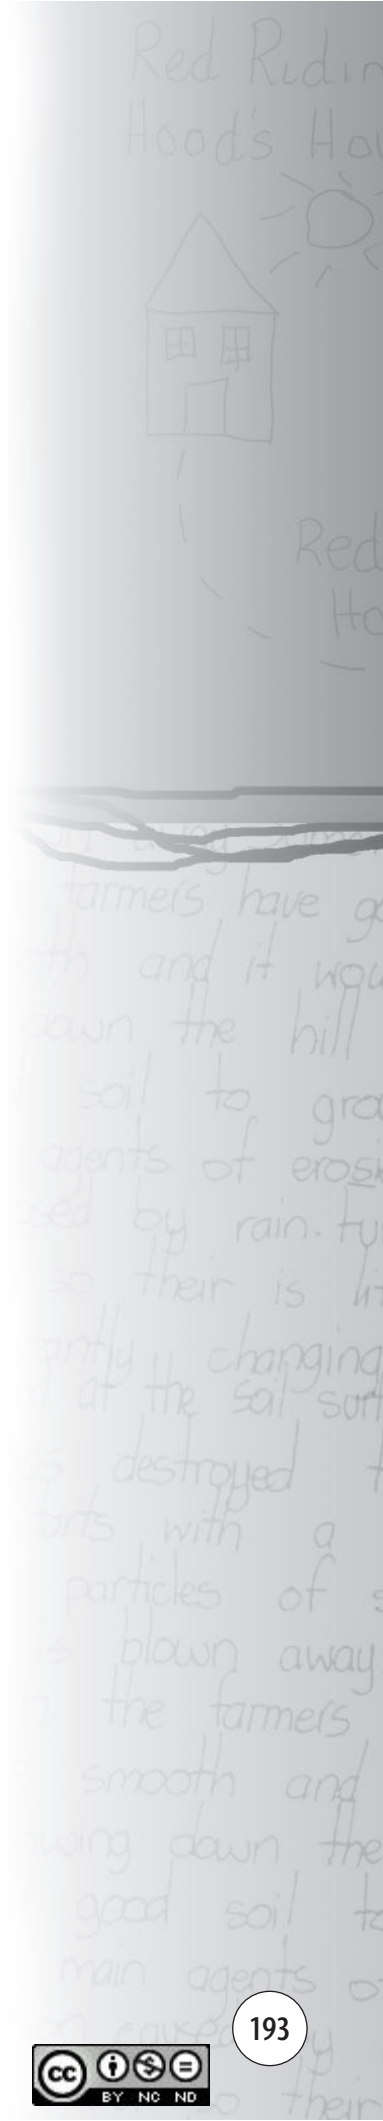 Red Ridin
Hood's Hou
Red
Ho
away some
farmers have go
and it wou
down the hill
soil to gro
agents of erosi
sed by rain. tu
so their is lit
antly changing
d at the soil surf
is destroyed t
arts with a
particles of s
is blown away
the farmers
smooth and
wing down the
good soil to
main agents o
caused by
193
their
cc
BY NC ND